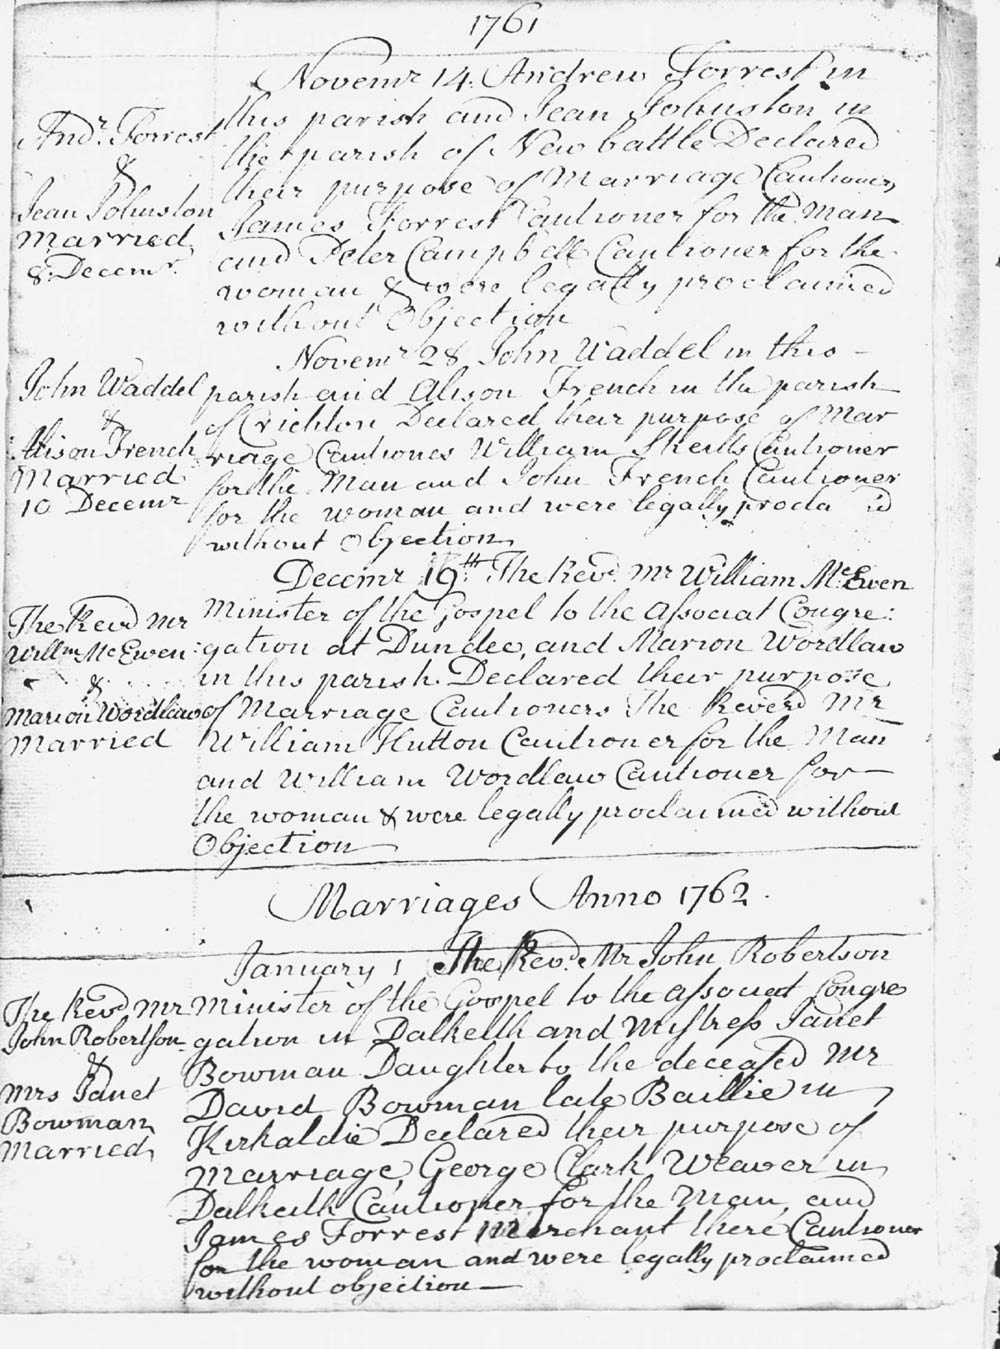 1761
Novemr 14. Andrew Forrest in
this parish and Jean Johnston in
the parish of Newbattle Declared
their purpose of Marriage Cautioners
James Forrest Cautioner for the Man
and Peter Campbell Cautioner for the
woman & were legally proclaimed
without Objection
Andr. Forrest
&
Jean Johnston
Married
8: Decemr.
Novemr 28 John Waddel in this
parish and Alison French in the parish
of Crichton Declared their purpose of Mar
riage Cautiones William Skeills Cautioner
for the Man and John French Cautioner
for the woman and were legally procla id
without Objection
John Waddel
&
Alison French
Married
10 Decemr
Decemr 19th The Revd. Mr William McEwen
Minister of the Gospel to the Associat Congre:
gation at Dundee, and Marion Wordlaw
in this parish. Declared their purpose
of Marriage Cautioners The Reverd Mr
William Hutton Cautioner for the Man
and William Wordlaw Cautioner for
the woman & were legally proclaimed without
Objection
The Revd Mr
Willm McEwen
&
Marion Wordlaw
Married
Marriages Anno 1762.
January 1 The Revd. Mr John Robertson
Minister of the Gospel to the Associat Congre
gation in Dalkeith and Mistress Janet
Bowman Daughter to the deceased Mr
David Bowman late Baillie in
Kirkaldie Declared their purpose of
Marriage, George Clark Weaver in
Dalkeith Cautioner for the Man, and
James Forrest Merchant there Cautioner
for the woman and were legally proclaimed
without objection
The Revd Mr
John Robertson
&
Mrs Janet
Bowman
Married